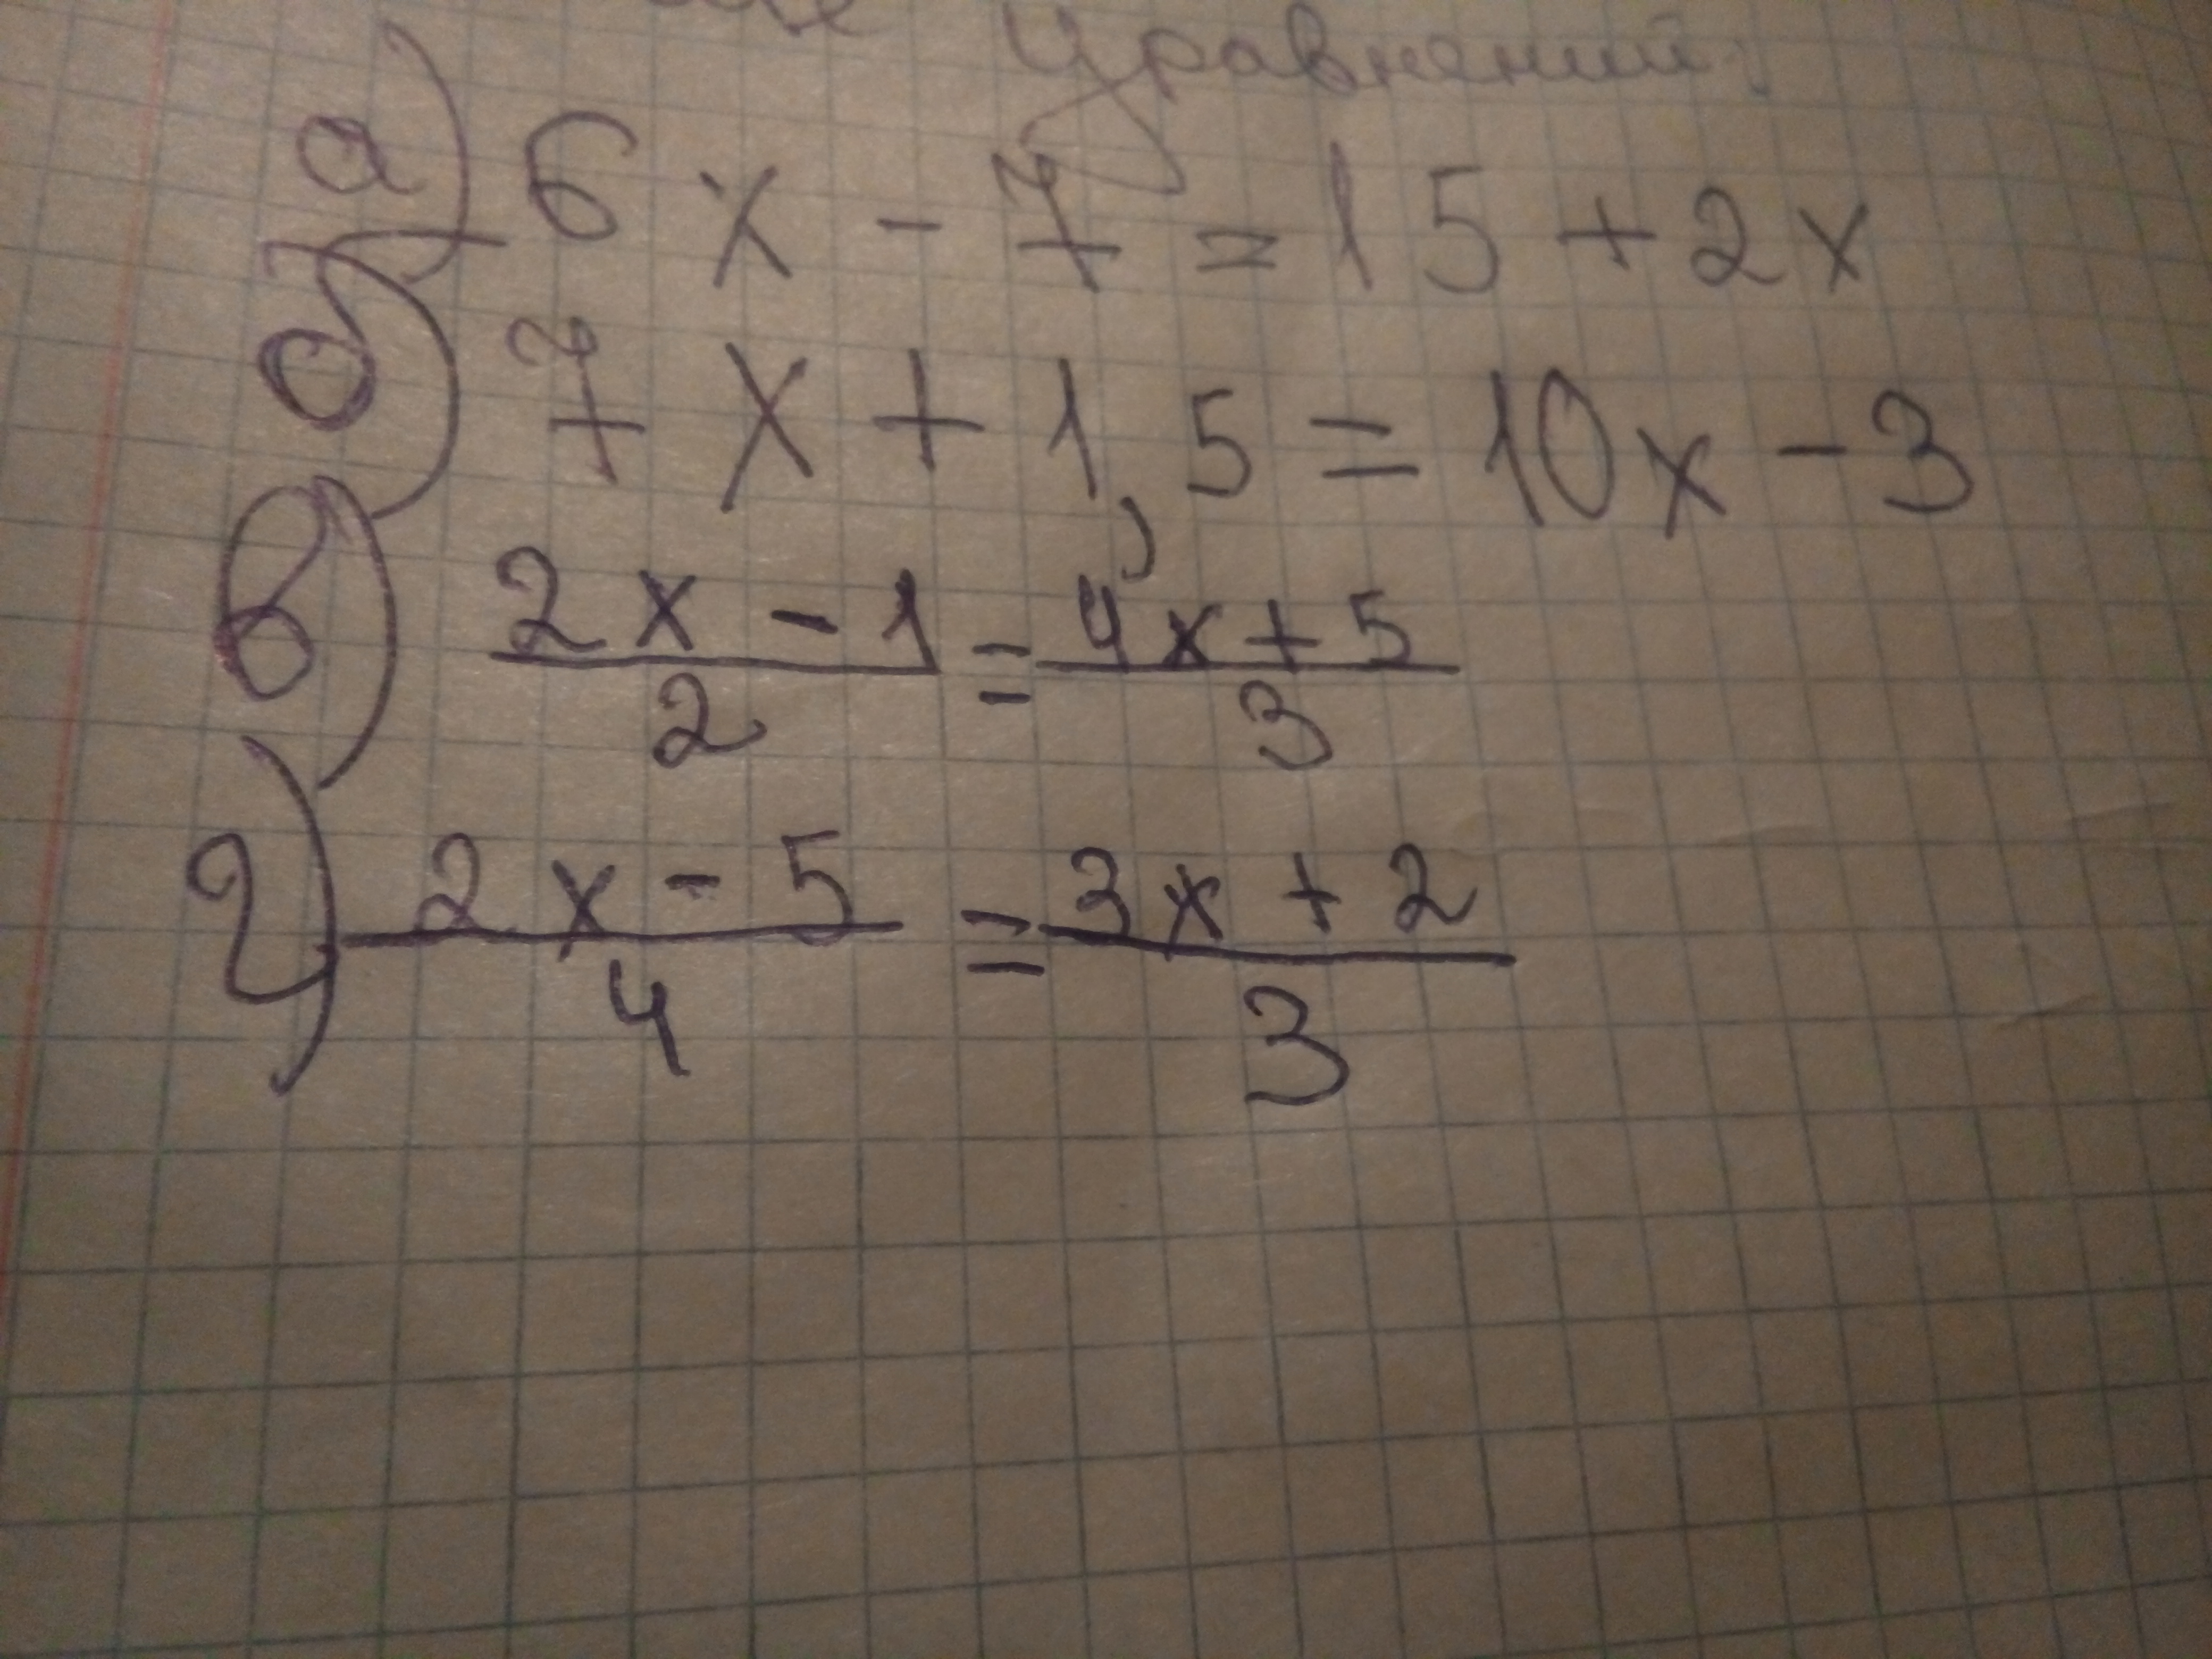 уравнений:
а) 6x - 7 = 15 + 2x
б) 7x + 1,5 = 10x - 3
в) \frac{2x - 1}{2} = \frac{4x + 5}{3}
г) \frac{2x - 5}{4} = \frac{3x + 2}{3}